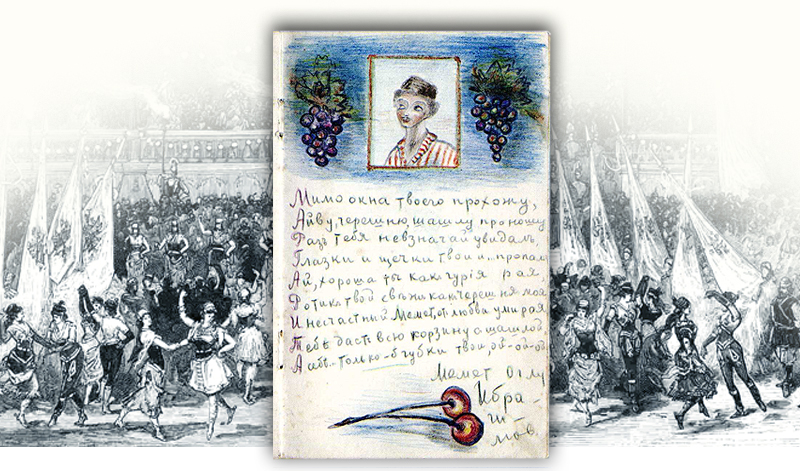 Мимо окна твоего прохожу,
Айву, черешню, шашлу проношу
Разъ тебя невзначай увидалъ,
Глазки и щечки твои и... пропалъ
Ай, хороша ты какъ гурiя рая,
Ротикъ твой свѣжъ какъ черешня моя
И несчастный Меметъ, от любви умирая
Тебѣ дастъ всю корзину с шашлой,
только-б губки твои, ой-ой-ой
Мемет Оглу
Ибра-
ги-
мов.